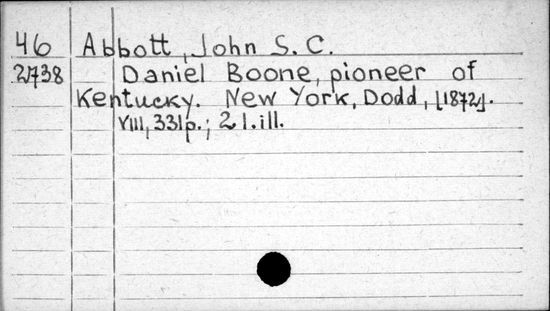 46 Abbott, John S. C.
2738 Daniel Boone, pioneer of
Kentucky. New York, Dodd, [1872].
VIII, 331p.; 2 l. ill.